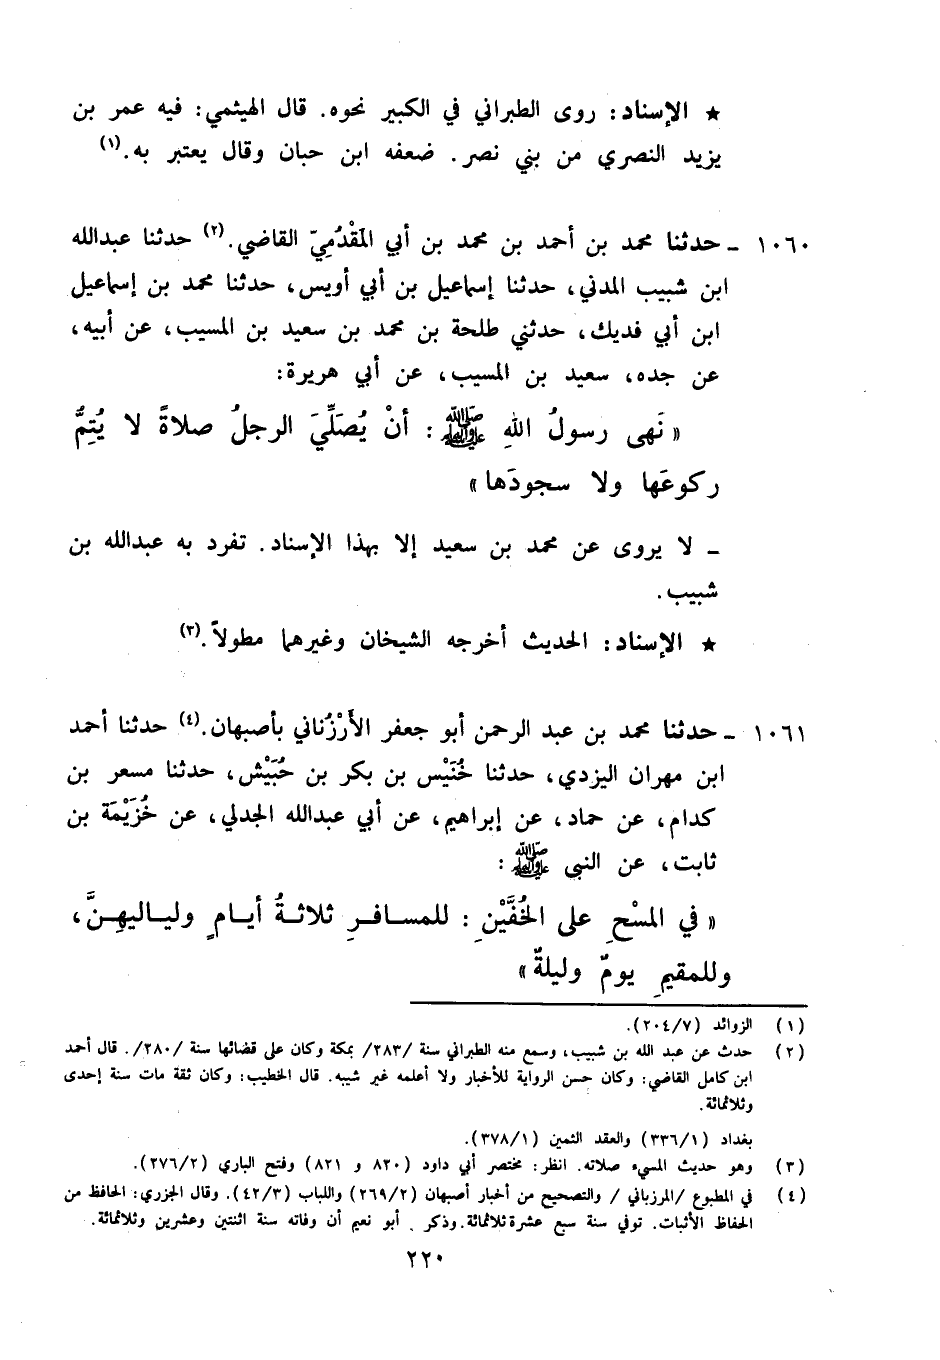 ★ الإسناد: روى الطبراني في الكبير نحوه. قال الهيثمي: فيه عمر بن
يزيد النصري من بني نصر. ضعفه ابن حبان وقال يعتبر به.(١)
١٠٦٠ ـ حدثنا محمد بن أحمد بن محمد بن أبي المَقْدُمِيّ القاضي.(٢) حدثنا عبدالله
ابن شبيب المدني، حدثنا إسماعيل بن أبي أويس، حدثنا محمد بن إسماعيل
ابن أبي فديك، حدثني طلحة بن محمد بن سعيد بن المسيب، عن أبيه،
عن جده، سعيد بن المسيب، عن أبي هريرة:
« نَهى رسولُ اللهِ ﷺ : أنْ يُصَلِّيَ الرجلُ صلاةً لا يُتِمُّ
ركوعَها ولا سجودَها »
ـ لا يروى عن محمد بن سعيد إلا بهذا الإسناد. تفرد به عبدالله بن
شبيب.
★ الإسناد: الحديث أخرجه الشيخان وغيرهما مطولاً.(٣)
١٠٦١ ـ حدثنا محمد بن عبد الرحمن أبو جعفر الأَرْزُناني بأصبهان.(٤) حدثنا أحمد
ابن مهران اليزدي، حدثنا خُنَيْس بن بكر بن حُبَيْش، حدثنا مسعر بن
كدام، عن حماد، عن إبراهيم، عن أبي عبدالله الجدلي، عن خُزَيْمَة بن
ثابت، عن النبي ﷺ :
« في المسْحِ على الخُفَّيْنِ : للمسافرِ ثلاثةُ أيامٍ ولياليهِنَّ،
وللمقيمِ يومٌ وليلةٌ »
(١) الزوائد (٢٠٤/٧).
(٢) حدث عن عبد الله بن شبيب، وسمع منه الطبراني سنة /٢٨٣/ بمكة وكان على قضائها سنة /٢٨٠/. قال أحمد
ابن كامل القاضي: وكان حسن الرواية للأخبار ولا أعلمه غير شيبه. قال الخطيب: وكان ثقة مات سنة إحدى
وثلاثمائة.
بغداد (٣٣٦/١) والعقد الثمين (٣٧٨/١).
(٣) وهو حديث المسيء صلاته. انظر: مختصر أبي داود (٨٢٠ و ٨٢١) وفتح الباري (٢٧٦/٢).
(٤) في المطبوع /المرزباني / والتصحيح من أخبار أصبهان (٢٦٩/٢) واللباب (٤٢/٣). وقال الجزري: الحافظ من
الحفاظ الأثبات. توفي سنة سبع عشرة ثلاثمائة. وذكر . أبو نعيم أن وفاته سنة اثنتين وعشرين وثلاثمائة.
٢٢٠